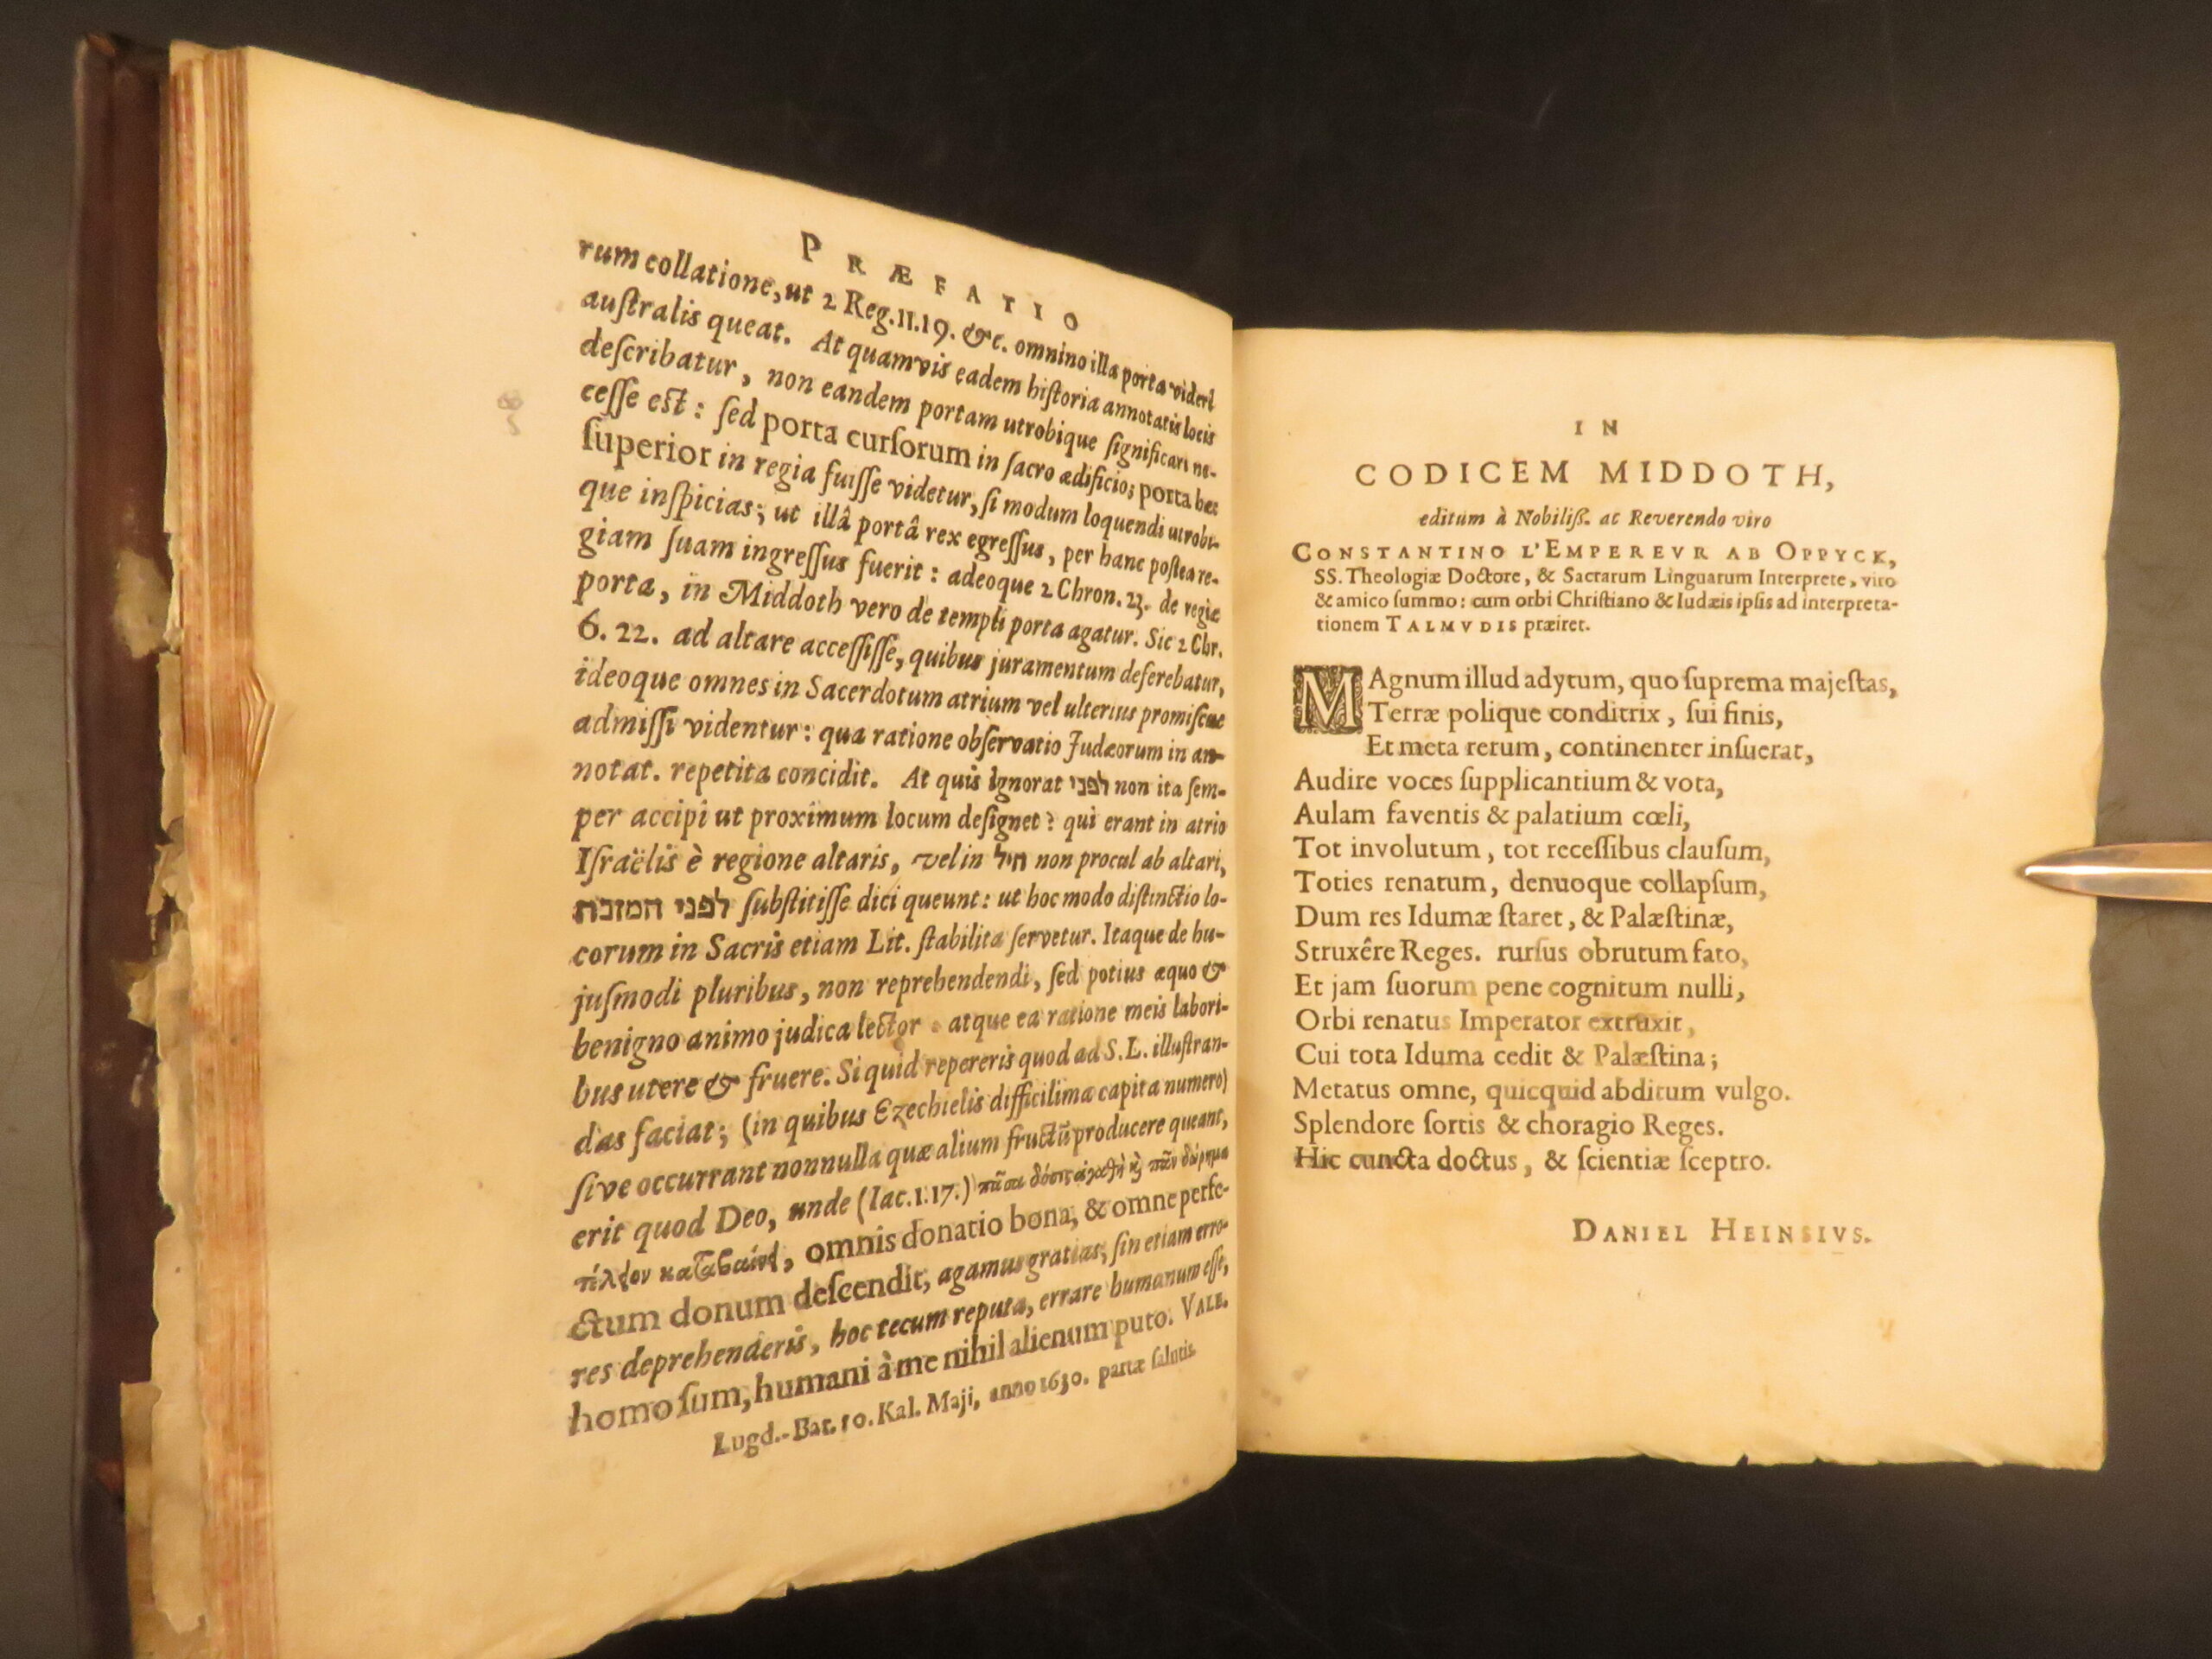 PRÆFATIO
rum collatione, ut 2 Reg. 11. 19. &c. omnino illa porta videri
auſtralis queat. At quamvis eadem hiſtoria annotatis locis
deſcribatur, non eandem portam utrobique ſignificari ne-
ceſſe eſt: ſed porta curſorum in ſacro ædificio; porta hæc
ſuperior in regia fuiſſe videtur, ſi modum loquendi utrobi-
que inſpicias; ut illâ portâ rex egreſſus, per hanc poſtea re-
giam ſuam ingreſſus fuerit: adeoque 2 Chron. 23. de regia
porta, in Middoth vero de templi porta agatur. Sic 2 Chr.
6. 22. ad altare acceſſiſſe, quibus juramentum deferebatur,
ideoque omnes in Sacerdotum atrium vel ulterius promiſcue
admiſſi videntur: qua ratione obſervatio Judæorum in an-
notat. repetita concidit. At quis ignorat לפני non ita ſem-
per accipi ut proximum locum deſignet? qui erant in atrio
Iſraëlis è regione altaris, vel in חיל non procul ab altari,
לפני המזבח ſubſtitiſſe dici queunt: ut hoc modo diſtinctio lo-
corum in Sacris etiam Lit. ſtabilita ſervetur. Itaque de hu-
juſmodi pluribus, non reprehendendi, ſed potius æquo &
benigno animo judica lector atque ea ratione meis labori-
bus utere & fruere. Si quid repereris quod ad S. L. illuſtran-
das faciat; (in quibus Ezechielis difficilima capita numero)
ſive occurrant nonnulla quæ alium fructũ producere queant,
erit quod Deo, unde (Iac. 1. 17.) πᾶσα δόσις ἀγαθὴ ϗ πᾶν δώρημα
τέλειον καταβαίνει, omnis donatio bona, & omne perfe-
ctum donum deſcendit, agamus gratias; ſin etiam erro-
res deprehenderis, hoc tecum reputa, errare humanum eſſe,
homo ſum, humani à me nihil alienum puto. VALE.
Lugd.-Bat. 10. Kal. Maji, anno 1630. partæ ſalutis.
IN
CODICEM MIDDOTH,
editum à Nobiliſſ. ac Reverendo viro
CONSTANTINO L'EMPEREVR AB OPPYCK,
SS. Theologiæ Doctore, & Sacrarum Linguarum Interprete, viro
& amico ſummo: cum orbi Chriſtiano & Iudæis ipſis ad interpreta-
tionem TALMVDIS præiret.
MAgnum illud adytum, quo ſuprema majeſtas,
Terræ polique conditrix, ſui finis,
Et meta rerum, continenter inſuerat,
Audire voces ſupplicantium & vota,
Aulam faventis & palatium cœli,
Tot involutum, tot receſſibus clauſum,
Toties renatum, denuoque collapſum,
Dum res Idumæ ſtaret, & Palæſtinæ,
Struxêre Reges. rurſus obrutum fato,
Et jam ſuorum pene cognitum nulli,
Orbi renatus Imperator extruxit,
Cui tota Iduma cedit & Palæſtina;
Metatus omne, quicquid abditum vulgo.
Splendore ſortis & choragio Reges.
Hic cuncta doctus, & ſcientiæ ſceptro.
DANIEL HEINSIVS.